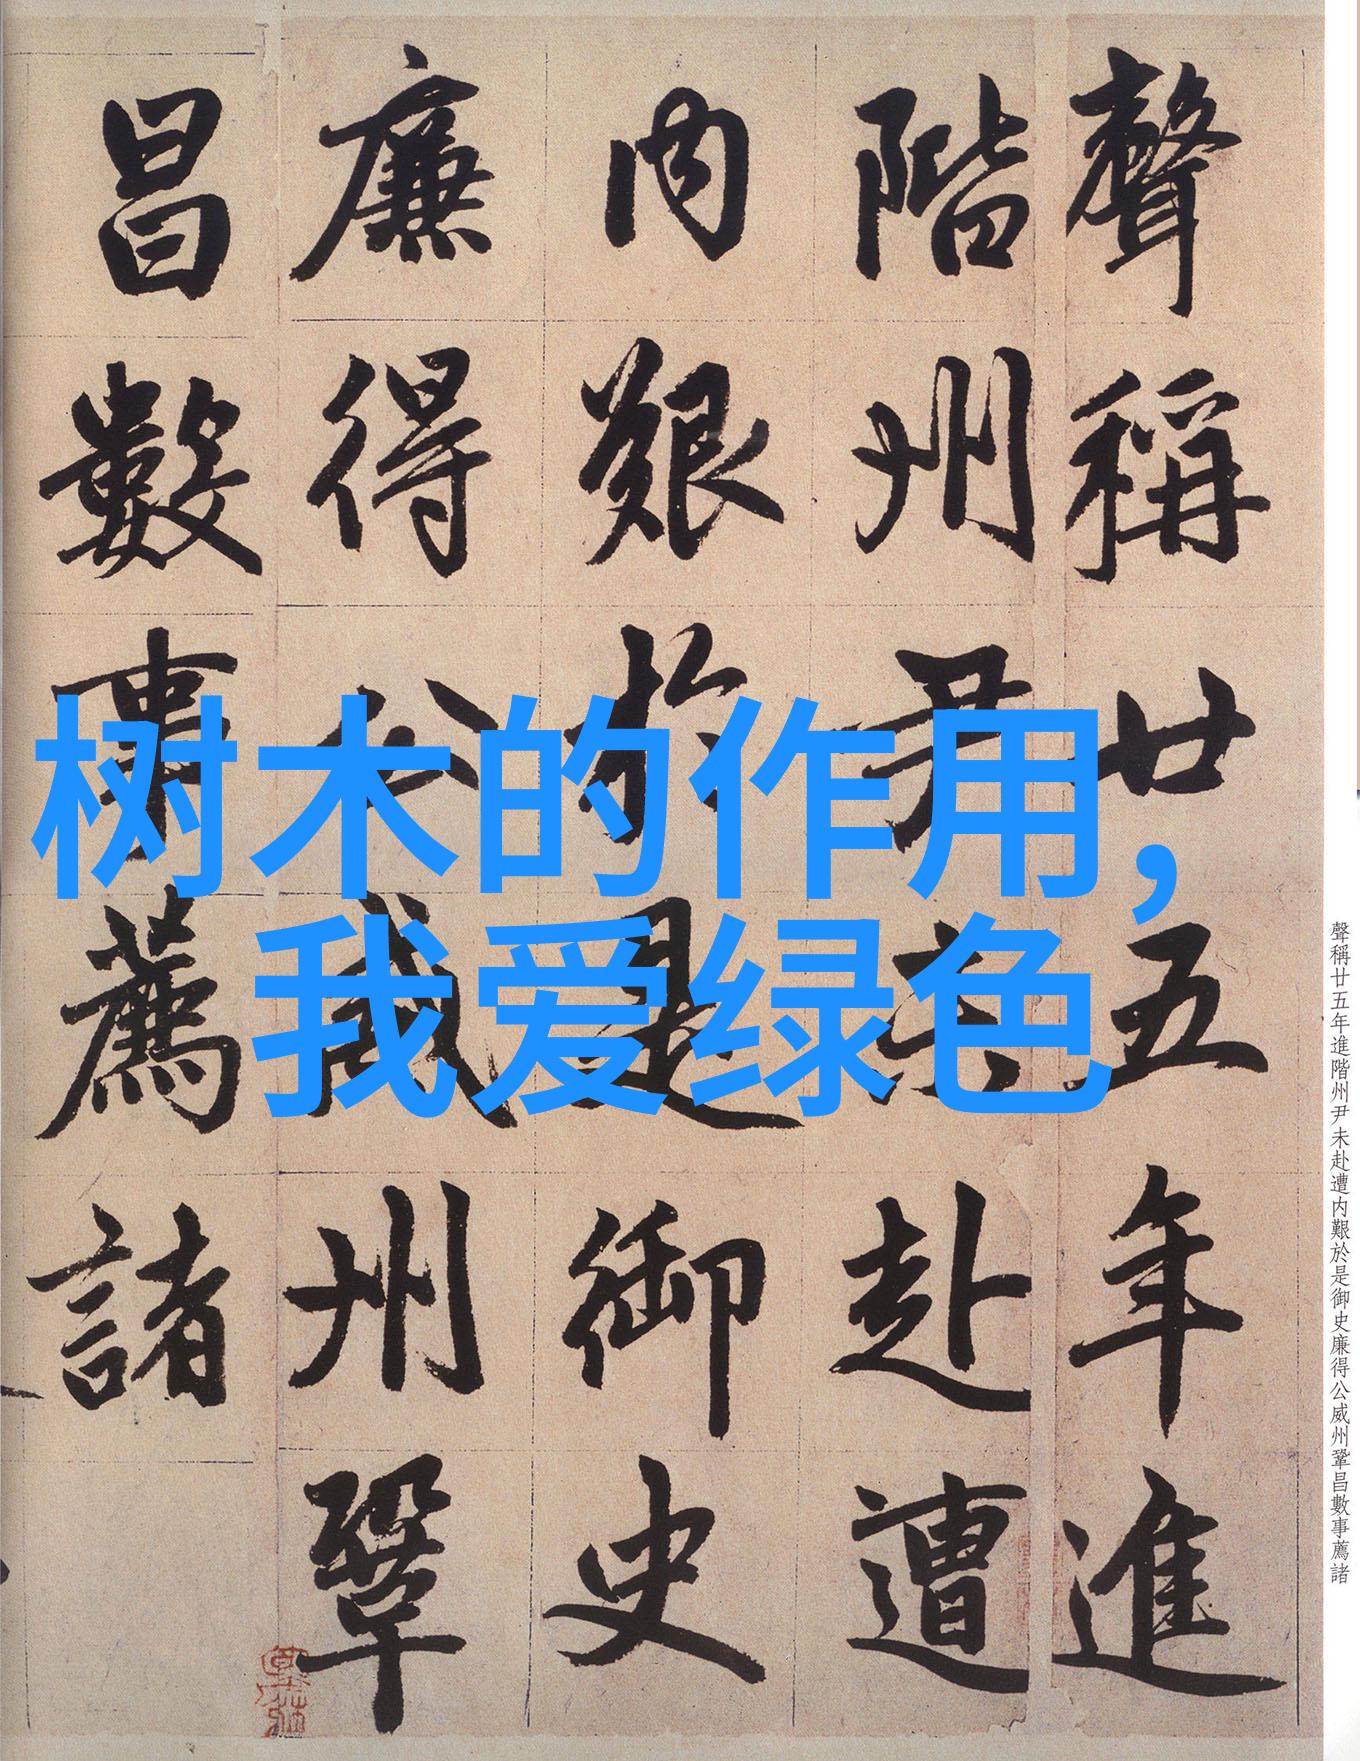 聲稱廿五年進
階州尹未赴遭
内艱於是御史
廉得公威州鞏
昌數事薦諸
树木的作用，
我爱绿色
聲稱廿五年進階州尹未赴遭内艱於是御史廉得公威州鞏昌數事薦諸